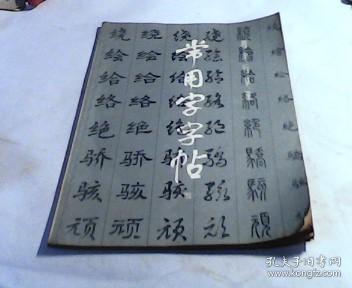 常用字字帖
绕 绕 绕 绕
绘 绘 绘 绘
给 给 给 给
络 络 络 络
绝 绝 绝 绝
骄 骄 骄 驕 驕
骇 骇 骇 骇
顽 顽 顽 顽 頑
孔夫子旧书网